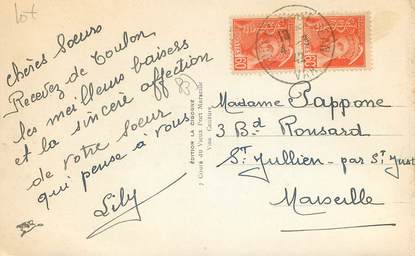 Lot
chères Soeurs
Recevez de Toulon
les meilleurs baisers
et la sincère affection
de votre Soeur
qui pense à vous
Lily
83
EDITION LA CIGOGNE
7 Cours du Vieux Port Marseille
Madame Pappone
3 Bd Ronsard
St Jullien - par St Just
Marseille